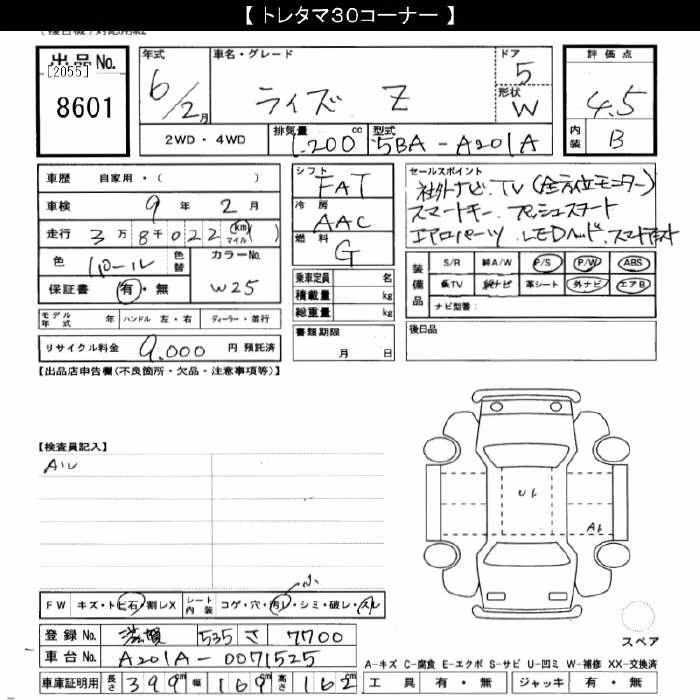 【 トレタマ30コーナー 】
出品No.
[2055]
8601
年式
6/2月
車名・グレード
ライズ Z
ドア
5
形状
W
評価点
4.5
内装
B
2WD・4WD
排気量
1.200 cc
型式
5BA-A201A
車歴 自家用・( )
車検 9年 2月
走行 3万8千022 (km マイル)
色 パール 色替
カラーNo.
W25
保証書 有・無
モデル年式 年 ハンドル 左・右 ディーラー・並行
リサイクル料金 9,000 円 預託済
シフト
FAT
冷房
AAC
燃料
G
乗車定員 名
積載量 kg
総重量 kg
書類期限
月 日
セールスポイント
社外ナビ.TV (全方位モニター)
スマートキー プッシュスタート
エアロパーツ LEDヘッド.スマアシ
装備品
S/R 純A/W P/S P/W ABS
純TV 純ナビ 革シート 外ナビ エアB
ナビ型番:
後日品
【出品店申告欄(不良箇所・欠品・注意事項等)】
【検査員記入】
AU
U1
A1
FW キズ・トビ石・割レX
シート内装 コゲ・穴・汚レ・シミ・破レ・スレ
小
登録No. 滋賀 535 さ 7700
車台No. A201A-0071525
車庫証明用 長さ 399 幅 169 高さ 162
スペア
A-キズ C-腐食 E-エクボ S-サビ U-凹ミ W-補修 XX-交換済
工具 有・無 ジャッキ 有・無